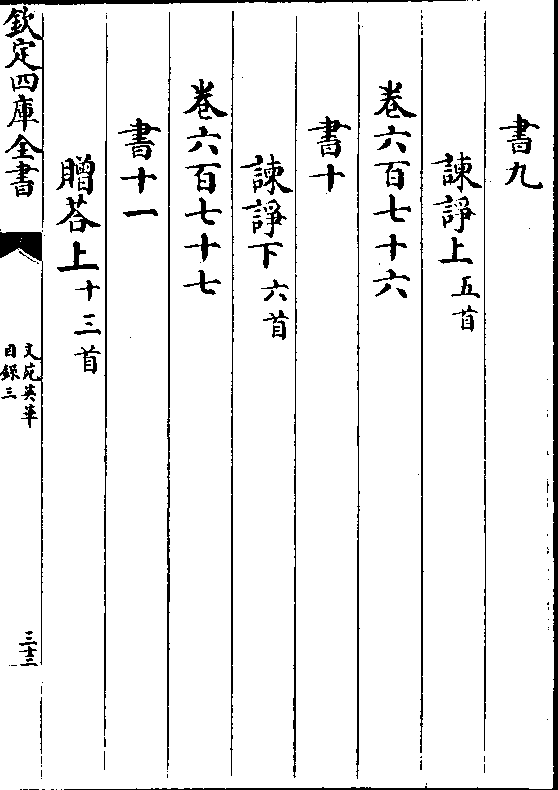 書九
諫諍上五首
卷六百七十六
書十
諫諍下六首
卷六百七十七
書十一
贈荅上十三首
欽定四庫全書
文苑英華
目錄三
三十三